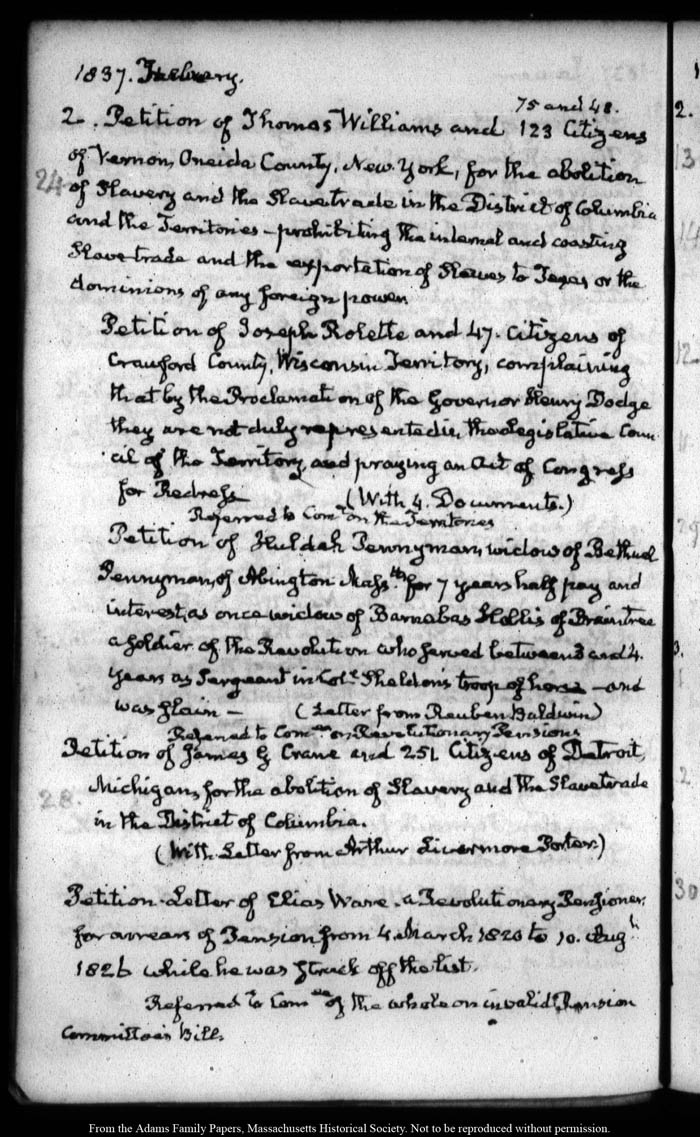 1837. February.
75 and 48.
2. Petition of Thomas Williams and 123 Citizens
of Vernon, Oneida County, New York, for the abolition
24
of Slavery and the Slave trade in the District of Columbia
and the Territories - prohibiting the internal and coasting
Slave trade and the exportation of Slaves to Texas or the
dominions of any foreign power
Petition of Joseph Rolette and 47. Citizens of
Crawford County, Wisconsin Territory, complaining
that by the Proclamation of the Governor Henry Dodge
they are not duly represented in the Legislative Coun
cil of the Territory, and praying an Act of Congress
for Redress (With 4. Documents.)
Referred to Comee on the Territories
Petition of Huldah Pennyman, widow of Bethuel
Pennyman, of Abington Massts for 7 years half pay and
interest, as once widow of Barnabas Hollis of Braintree
a Soldier of the Revolution who served between 3 and 4.
years as Sergeant in Colo Sheldon's troop of horse - and
was slain - (Letter from Reuben Baldwin)
Referred to Comee on Revolutionary Pensions
Petition of James G Crane and 251 Citizens of Detroit,
Michigan, for the abolition of Slavery and the Slave trade
28.
in the District of Columbia.
(With Letter from Arthur Livermore Porter.)
Petition-Letter of Elias Ware. a Revolutionary Pensioner
for arrears of Pension from 4. March 1820 to 10. Augt
1826 while he was struck off the list.
Referred to Comee of the whole on invalid Pension
Committee's Bill.
2.
13
14
12
29
3.
1
2
30
From the Adams Family Papers, Massachusetts Historical Society. Not to be reproduced without permission.